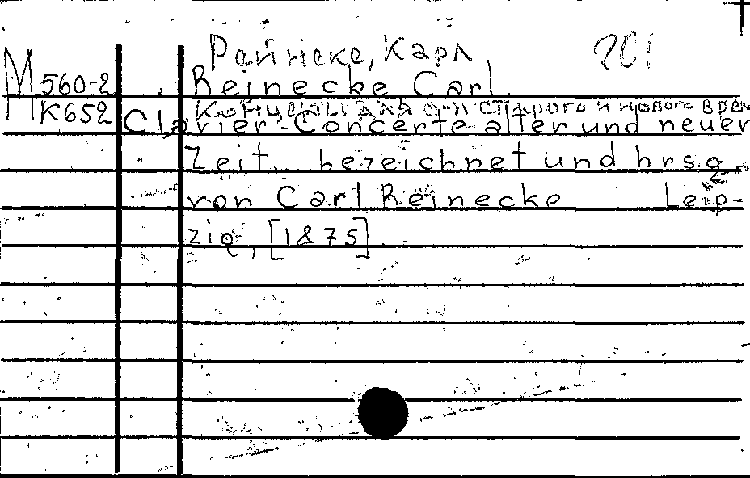 Рейнеке, Карл 201
М 560-2 Reinecke Carl
К652 Концерты для ф-п старого и нового врем
Clavier-Concerte alter und neuer
Zeit, bezeichnet und hrsg.
von Carl Reinecke Leip-
zig, [1875].